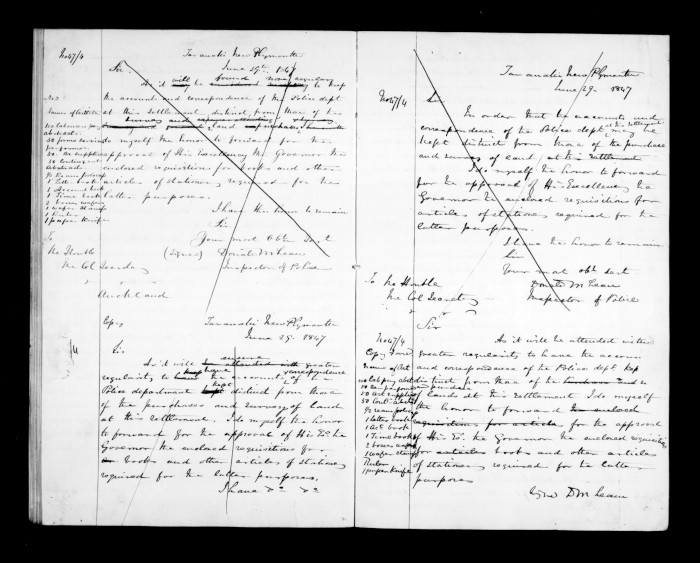 No 47/4
Taranaki New Plymouth
June 29th 1847
Sir
As it will be found more regular to keep
the account and correspondence of the Police dept
at this settlement distinct from that of the
survey and
land purchase
to myself the honor to forward for the
approval of His Excellency the Governor the
enclosed requisitions for books and other
articles of stationery required for the
latter purposes.
I have the honor to remain
Sir
Your most obt Servt
(signed) Donald McLean
Inspector of Police
To
The Honble
The Col Secretary
Auckland
1 Letter book
1 Record book
1 Time book
2 boxes wafers
1 wafer stamp
1 Ruler
1 paper knife
Copy
Taranaki New Plymouth
June 29. 1847
/4
Sir
As it will ensure greater
regularity to have the accounts & correspondence
Police department kept distinct from those
of the purchases and surveys of land
at this settlement. I do myself the honor
to forward for the approval of His Ex. the
Governor the enclosed requisitions for
books and other articles of stationery
required for the latter purposes.
I have &c &c
Taranaki New Plymouth
June 29. 1847
No 47/4
Sir
In order that the accounts and
correspondence of the Police dept at this settlement may be
kept distinct from those of the purchase
and surveys of land at the settlement
I do myself the honor to forward
for the approval of His Excellency the
Governor the enclosed requisitions for
articles of stationery required for the
latter purposes.
I have the honor to remain
Sir
Your most obt Servt
Donald McLean
Inspector of Police
To the Honble
The Col Secretary
No 47/4
Sir
As it will be attended with
greater regularity to have the accounts
and correspondence of the Police dept kept
distinct from those of the
of lands at this settlement. I do myself
the honor to forward the enclosed
requisitions for articles for the approval
of His Ex. the Governor the enclosed requisitions
for articles books and other articles
of stationery required for the latter
purposes
1 letter book
1 Time book
2 boxes wafers
1 wafer stamp
Ruler
1 paper knife
Signed D McLean